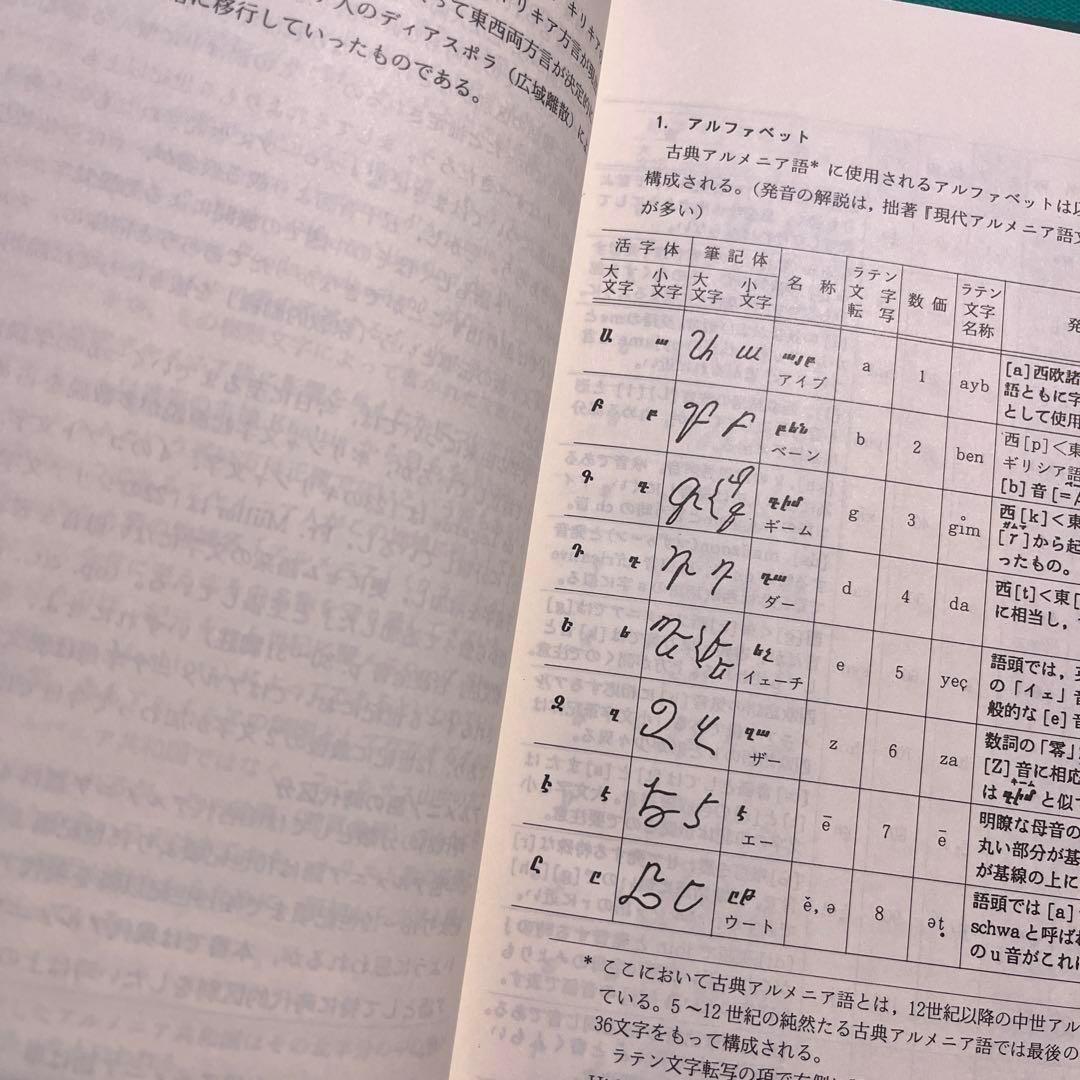 キリキア
キリキア方言が現
って東西両方言が決定的に
人のディアスポラ（広域離散）によ
に移行していったものである。
1. アルファベット
古典アルメニア語* に使用されるアルファベットは以
構成される。（発音の解説は，拙著『現代アルメニア語文
が多い）
活字体 筆記体 名称 ラテン文字転写 数価 ラテン文字名称 発
大文字 小文字 大文字 小文字
Ա ա Ա ա այբ アイブ a 1 ayb [a]西欧諸
語ともに字
として使用
Բ բ Բ բ բեն ベーン b 2 ben 西[p]＜東
ギリシア語
[b]音[=
Գ գ Գ գ գիմ ギーム g 3 gim 西[k]＜東
[γ]から起
ったもの。
Դ դ Դ դ դա ダー d 4 da 西[t]＜東[
に相当し，
Ե ե Ե ե եչ イェーチ e 5 yeç 語頭では，英
の「イェ」音
般的な[e]音
Զ զ Զ զ զա ザー z 6 za 数詞の「零」
[Z]音に相応
はգիմと似て
Է է Է է է エー ē 7 ē 明瞭な母音の
丸い部分が基
が基線の上に
Ը ը Ը ը ըթ ウート ě, ə 8 əṭ 語頭では[a]
schwaと呼ばれ
のu音がこれに
* ここにおいて古典アルメニア語とは，12世紀以降の中世アル
ている。5～12世紀の純然たる古典アルメニア語では最後の
36文字をもって構成される。
ラテン文字転写の項で右側に